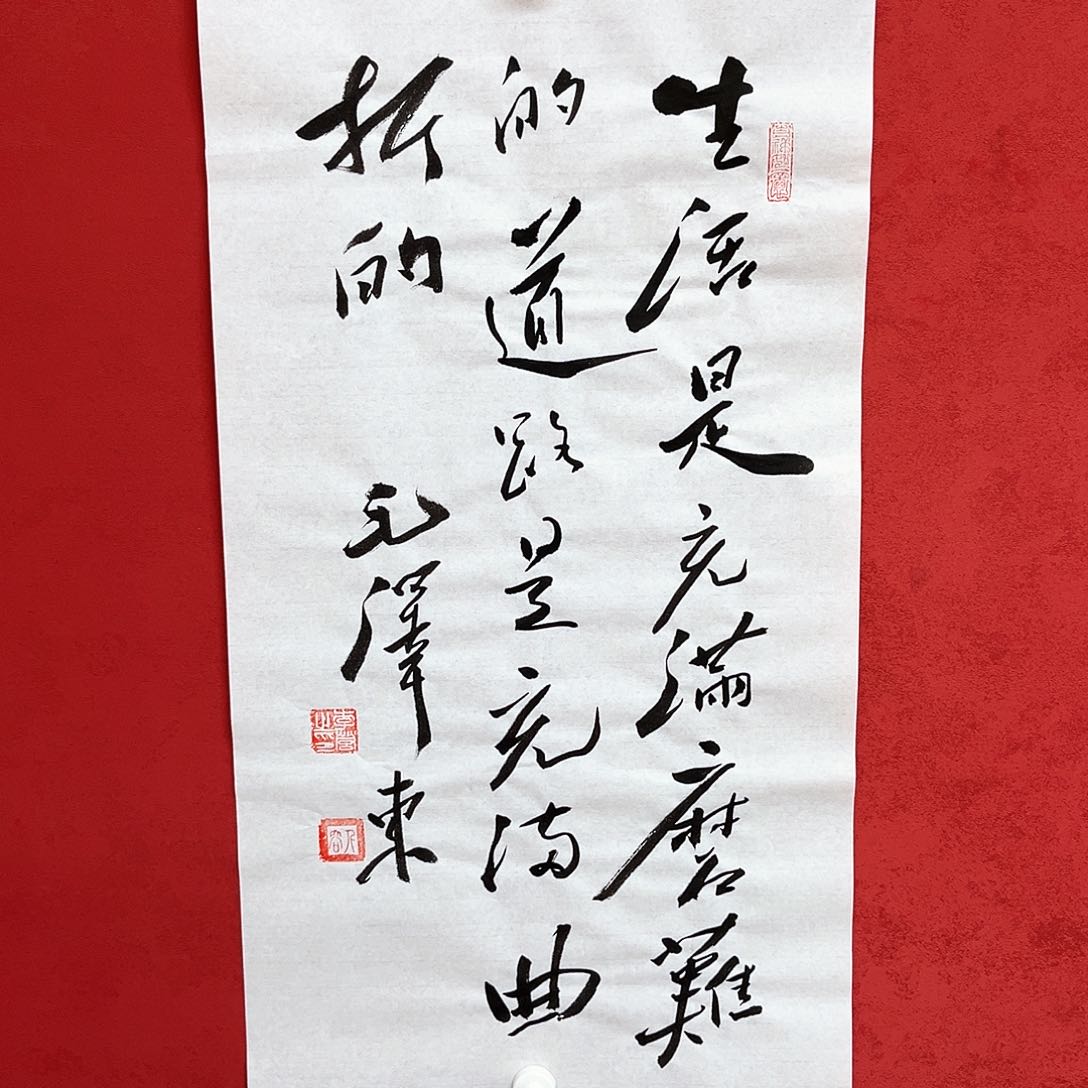 生活是充满磨難
的道路是充满曲
折的
毛澤東